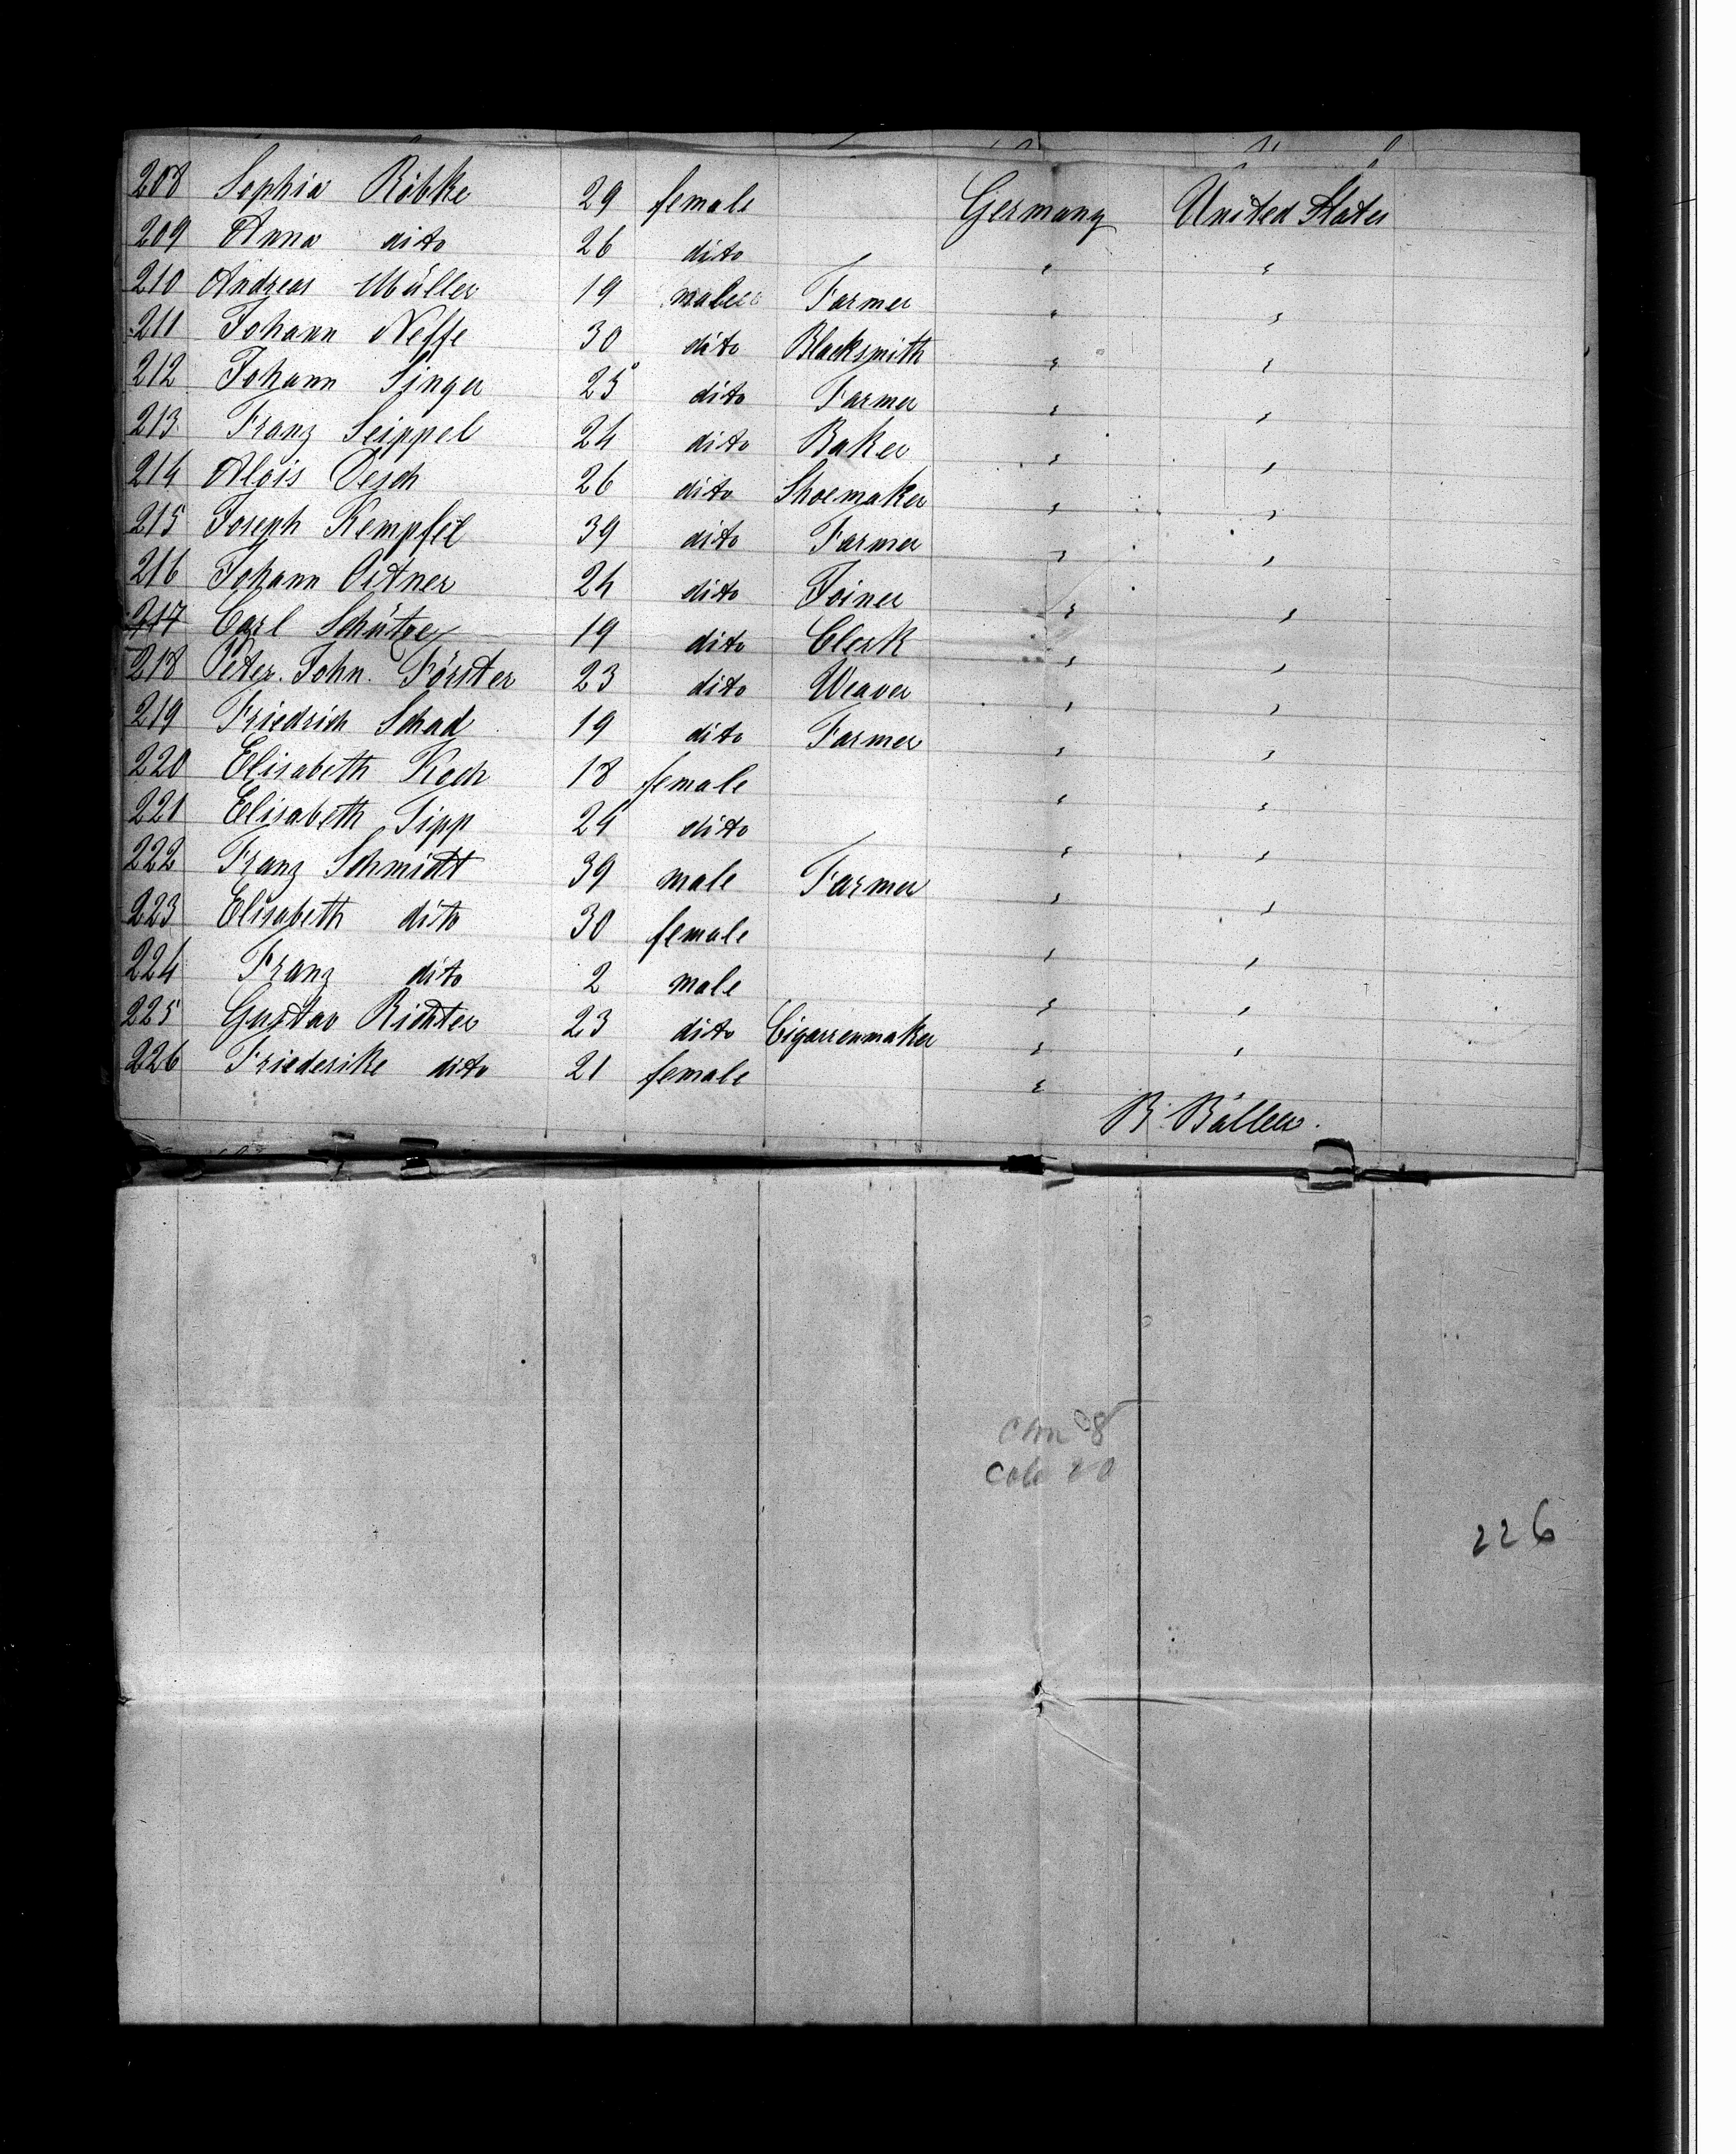 208 Sophia Röbke 29 female Germany United States
209 Anna dito 26 dito " "
210 Andreas Müller 19 male Farmer " "
211 Johann Neffe 30 dito Blacksmith " "
212 Johann Singer 25 dito Farmer " "
213 Franz Seippel 24 dito Baker " "
214 Alois Oesch 26 dito Shoemaker " "
215 Joseph Kempfel 39 dito Farmer " "
216 Johann Ortner 24 dito Joiner " "
217 Carl Schütze 19 dito Clerk " "
218 Peter. John. Förster 23 dito Weaver " "
219 Friedrich Schad 19 dito Farmer " "
220 Elisabeth Koch 18 female " "
221 Elisabeth Sipp 24 dito " "
222 Franz Schmidt 39 male Farmer " "
223 Elisabeth dito 30 female " "
224 Franz dito 2 male " "
225 Gustav Richter 23 dito Cigarrenmaker " "
226 Friederike dito 21 female "
226